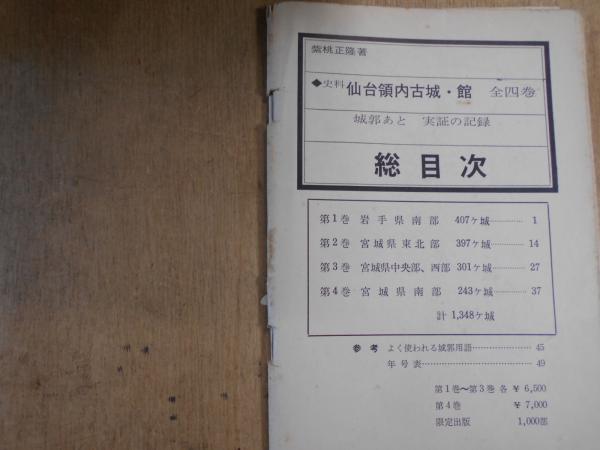 紫桃正隆著
◆史料 仙台領内古城・館 全四巻
城郭あと 実証の記録
総目次
第1巻 岩手県南部 407ケ城………… 1
第2巻 宮城県東北部 397ケ城………… 14
第3巻 宮城県中央部、西部 301ケ城………… 27
第4巻 宮城県南部 243ケ城………… 37
計 1,348ケ城
参考 よく使われる城郭用語………………… 45
年号表………………………………… 49
第1巻〜第3巻 各 ¥ 6,500
第4巻 ¥ 7,000
限定出版 1,000部